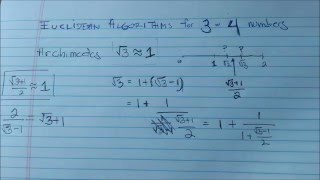 EUCLIDEAN ALGORITHMS for 3 or 4 numbers
Archimedes √3 ≈ 1
1 √3 2
(√3+1)/2 ≈ 1
√3 = 1 + (√3-1)
(√3+1)/2
2/(√3-1) = √3+1
= 1 + 1/((√3+1)/2) = 1 + 1/(1 + (√3-1)/2)